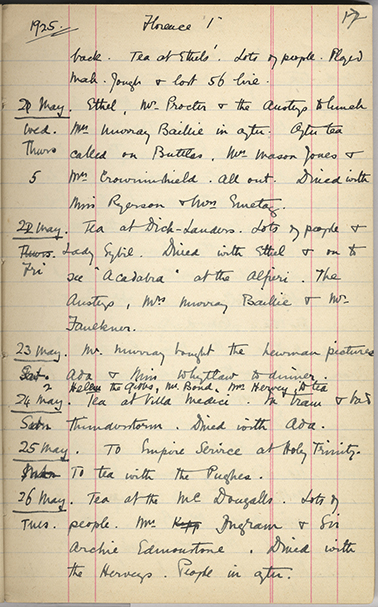 1925. Florence 1 17
back. Tea at Ethels'. Lots of people. Played
Mah-Jongh & lost 56 lire.
20 May. Ethel, Mr Procter & the Ansteys to lunch
Wed. Mrs Murray Baillie in after. After tea
Thurs called on Buttles, Mrs Mason Jones &
5 Mrs Crowninshield. All out. Dined with
Miss Ryerson & Mrs
22 May. Tea at Dick-Lauders. Lots of people &
Thurs. Lady Sybil. Dined with Ethel & on to
Fri see "Acadabra" at the Alfieri. The
Ansteys, Mrs Murray Baillie & Mr
Faulkner.
23 May. Mr. Murray bought the Newman pictures
Sat. Ada & Miss Whytlaw to dinner.
2 Helen the Gibbs, Mr. Bond, Mrs Hervey, to tea
24 May. Tea at Villa Medici. In tram & bad
Sun thunderstorm. Dined with Ada.
25 May. To Empire Service at Holy Trinity.
To tea with the Pughes.
26 May. Tea at the Mc Dougalls. Lots of
Tues. people. Mrs Ingram & Sir
Archie Edmonstone. Dined with
the Herveys. People in after.